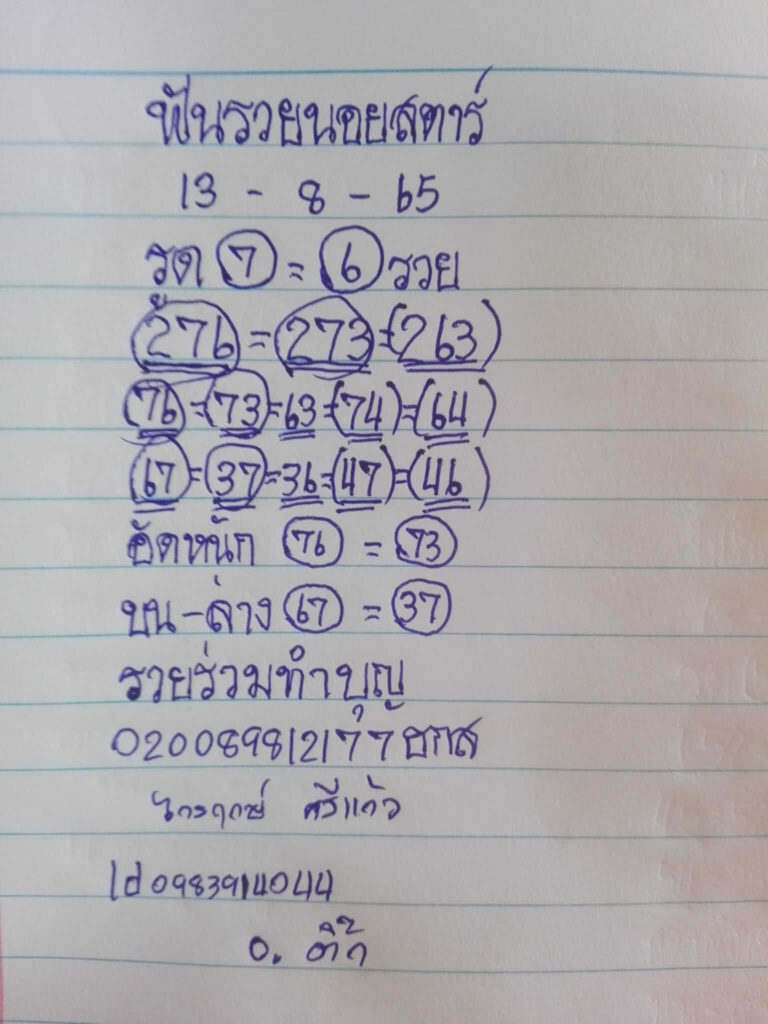 ฟันรวยนอยสตาร์
13 - 8 - 65
รูด 7 = 6 รวย
276 = 273 = (263)
76 = (73) = 63 = (74) = (64)
67 = (37) = 36 = (47) = (46)
อัดหนัก 76 = 73
บน-ล่าง 67 = 37
รวยร่วมทำบุญ
020089812177 ธกส
ไกรฤกษ์ ศรีแก้ว
Id 0983914044
อ. ติ๊ก